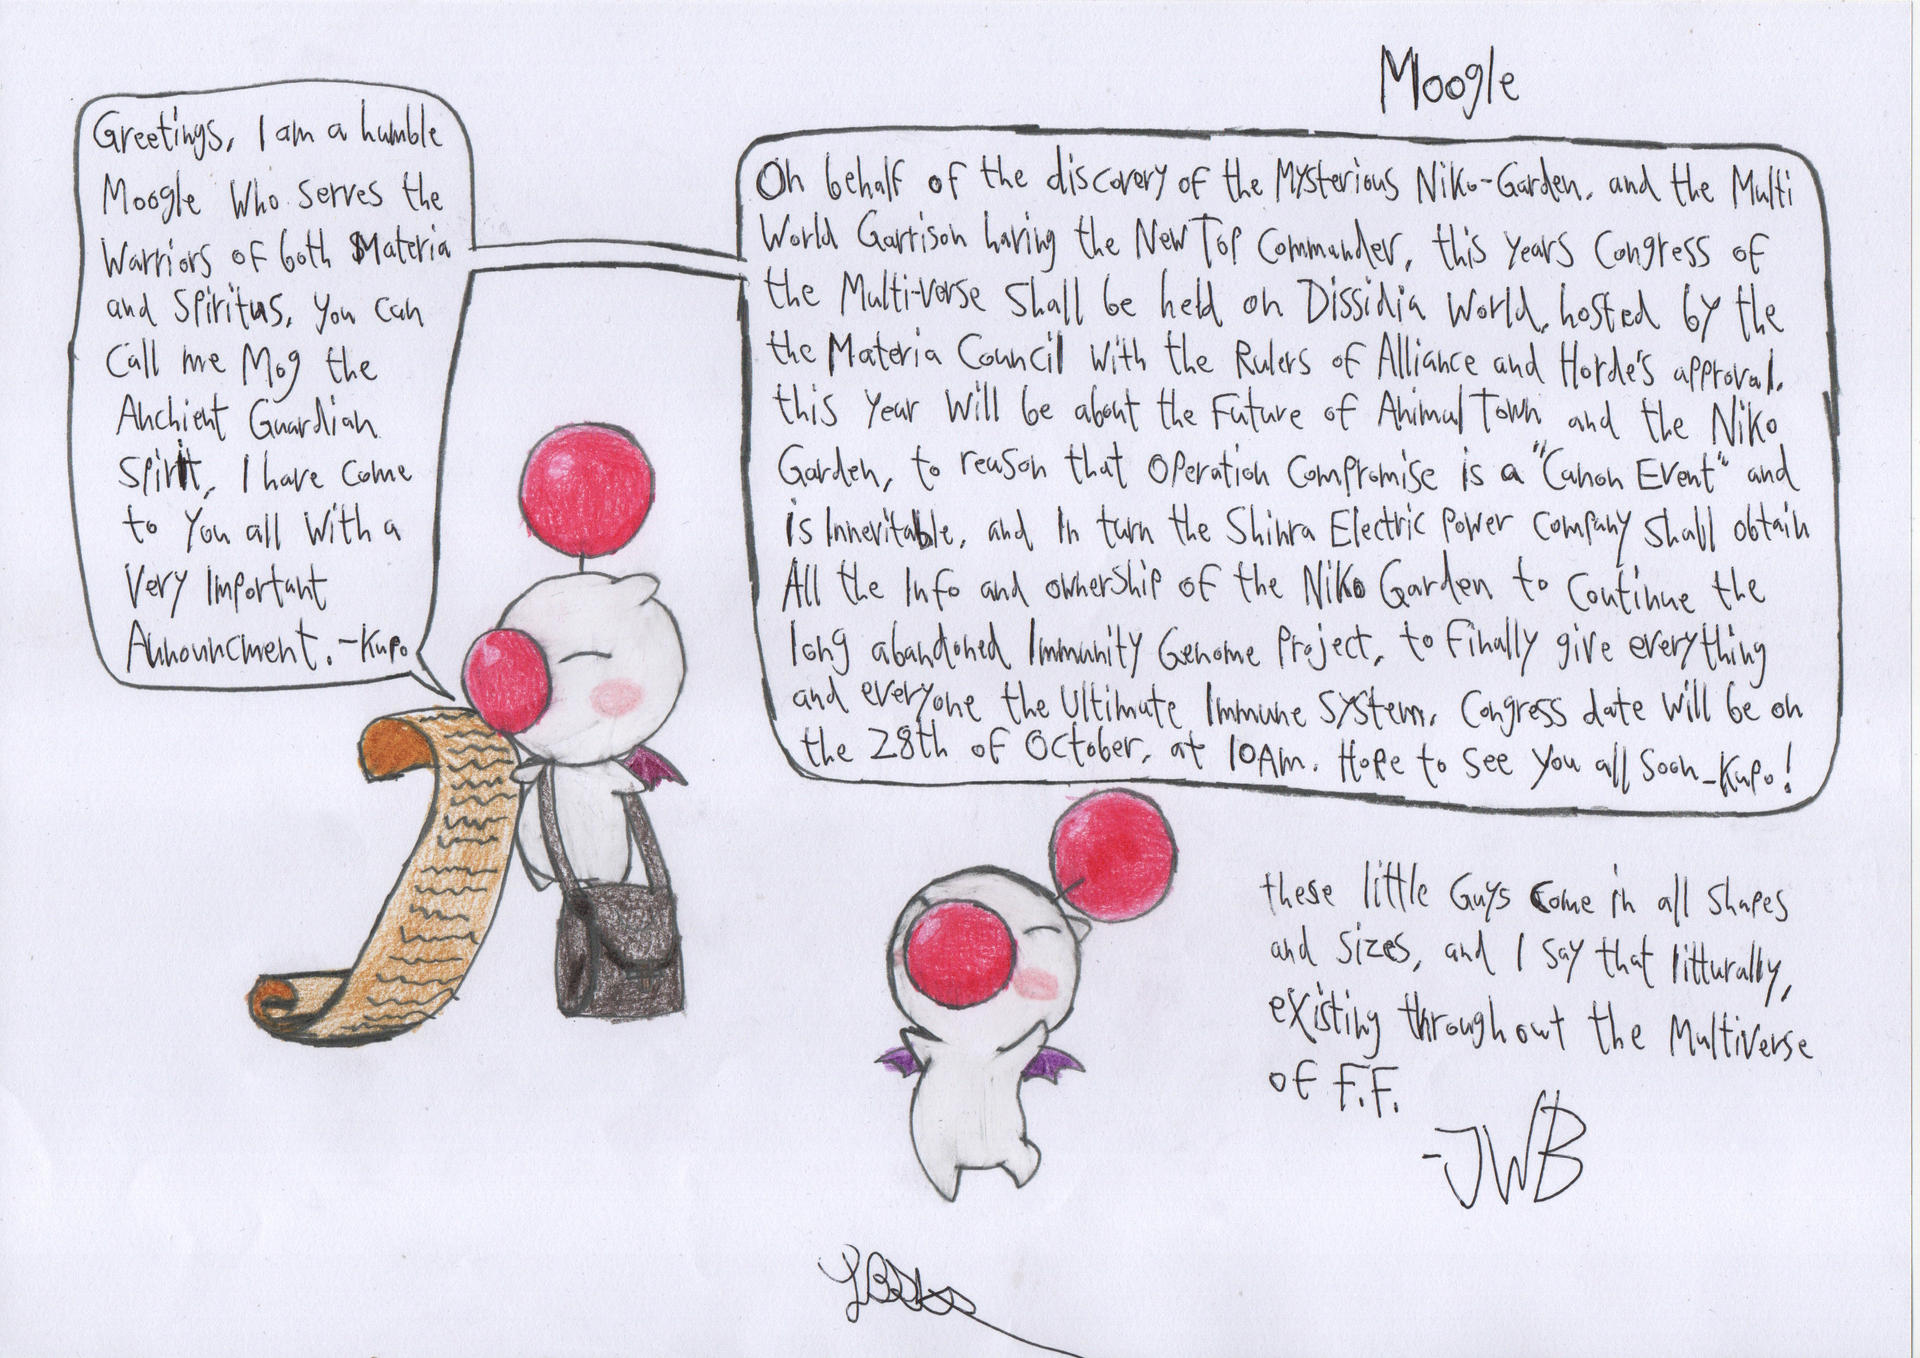 Moogle
Greetings, I am a humble
Moogle Who serves the
Warriors of both Materia
and Spiritus, You can
Call me Mog the
Anchient Guardian
Spirit, I have come
to You all With a
Very Important
Announcment. -Kupo
On behalf of the discovery of the Mysterious Niko-Garden, and the Multi
World Garrison having the New Top Commander, this years Congress of
the Multi-verse Shall be held on Dissidia World, hosted by the
the Materia Council with the Rulers of Alliance and Horde's approval.
this Year Will be about the Future of Animal Town and the Niko
Garden, to reason that Operation Compromise is a "Canon Event" and
is Innevitable, and In turn the Shinra Electric Power Company Shall obtain
All the Info and ownership of the Niko Garden to Continue the
long abandoned Immunity Genome Project, to Finally give everything
and everyone the Ultimate Immune System. Congress date Will be on
the 28th of October, at 10AM. Hope to See You all Soon-Kupo!
these little Guys Come in all Shapes
and Sizes, and I Say that litturally,
existing throughout the Multiverse
of F.F.
-JWB